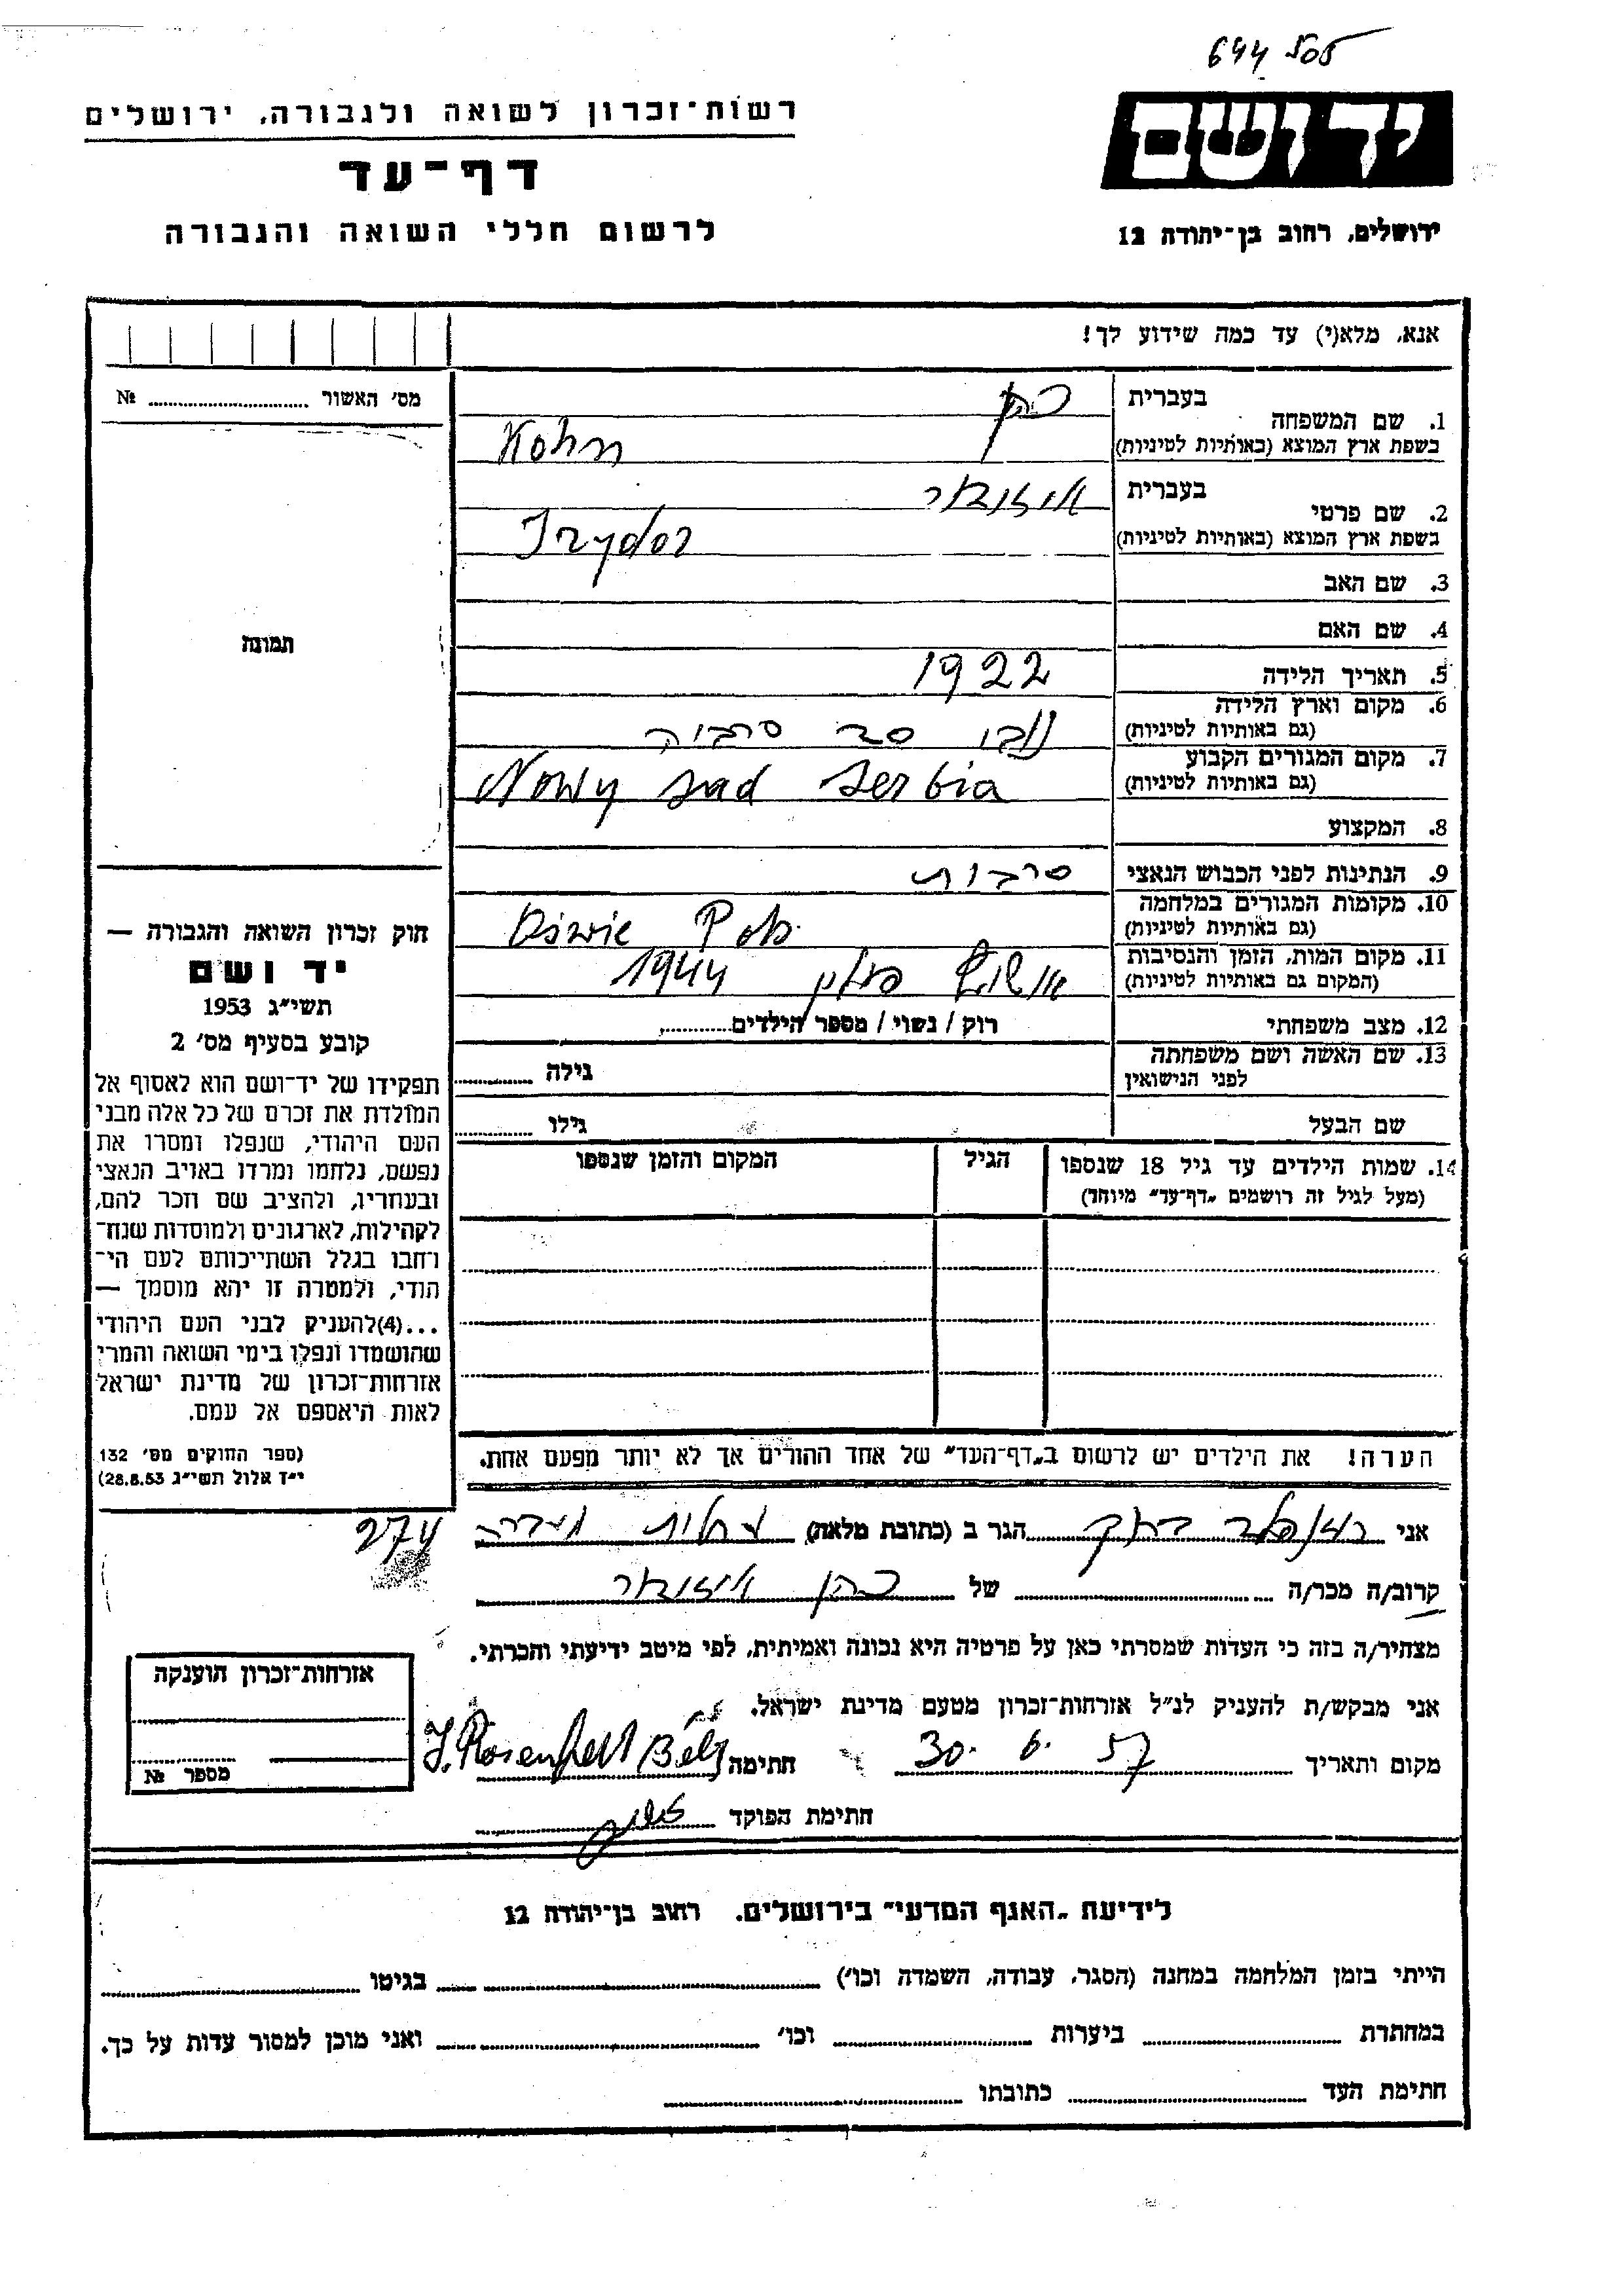 רשות־זכרון לשואה ולגבורה, ירושלים
דף־עד
לרשום חללי השואה והגבורה
ידושם
ירושלים, רחוב בן־יהודה 12
אנא, מלא(י) עד כמה שידוע לך!
מס׳ האשור ........ №
תמונה
1. שם המשפחה בעברית כהן
בשפת ארץ המוצא (באותיות לטיניות) Kohn
2. שם פרטי בעברית איזידור
בשפת ארץ המוצא (באותיות לטיניות) Izydor
3. שם האב
4. שם האם
5. תאריך הלידה 1922
6. מקום וארץ הלידה (גם באותיות לטיניות) נובי סד סרביה
7. מקום המגורים הקבוע (גם באותיות לטיניות) Nowy sad Serbia
8. המקצוע
9. הנתינות לפני הכבוש הנאצי סרבית
10. מקומות המגורים במלחמה (גם באותיות לטיניות)
11. מקום המות, הזמן והנסיבות (המקום גם באותיות לטיניות) פולין 1944
12. מצב משפחתי רוק / נשוי / מספר הילדים........
13. שם האשה ושם משפחתה לפני הנישואין גילה ........
שם הבעל גילו ........
14. שמות הילדים עד גיל 18 שנספו הגיל המקום והזמן שנספו
(מעל לגיל זה רושמים „דף־עד״ מיוחד)
הערה! את הילדים יש לרשום ב„דף־העד״ של אחד ההורים אך לא יותר מפעם אחת.
חוק זכרון השואה והגבורה —
יד ושם
תשי״ג 1953
קובע בסעיף מס׳ 2
תפקידו של יד־ושם הוא לאסוף אל
המולדת את זכרם של כל אלה מבני
העם היהודי, שנפלו ומסרו את
נפשם, נלחמו ומרדו באויב הנאצי
ובעוזריו, ולהציב שם וזכר להם,
לקהילות, לארגונים ולמוסדות שנח־
רבו בגלל השתייכותם לעם הי־
הודי, ולמטרה זו יהא מוסמך —
...(4)להעניק לבני העם היהודי
שהושמדו ונפלו בימי השואה והמרי
אזרחות־זכרון של מדינת ישראל
לאות היאספם אל עמם.
(ספר החוקים מס׳ 132
י״ד אלול תשי״ג 28.8.53)
274
אני רוזנפלד הגר ב (כתובת מלאה)
קרוב/ה מכר/ה ........ של כהן איזידור
מצהיר/ה בזה כי העדות שמסרתי כאן על פרטיה היא נכונה ואמיתית, לפי מיטב ידיעתי והכרתי.
אני מבקש/ת להעניק לנ״ל אזרחות־זכרון מטעם מדינת ישראל.
מקום ותאריך 30. 6. 57 חתימה J. Rosenfeld Béla
חתימת הפוקד
אזרחות־זכרון הוענקה
מספר №
לידיעת „האגף המדעי״ בירושלים, רחוב בן־יהודה 12
הייתי בזמן המלחמה במחנה (הסגר, עבודה, השמדה וכו׳) ........ בגיטו ........
במחתרת ........ ביערות ........ וכו׳ ........ ואני מוכן למסור עדות על כך.
חתימת העד ........ כתובתו ........